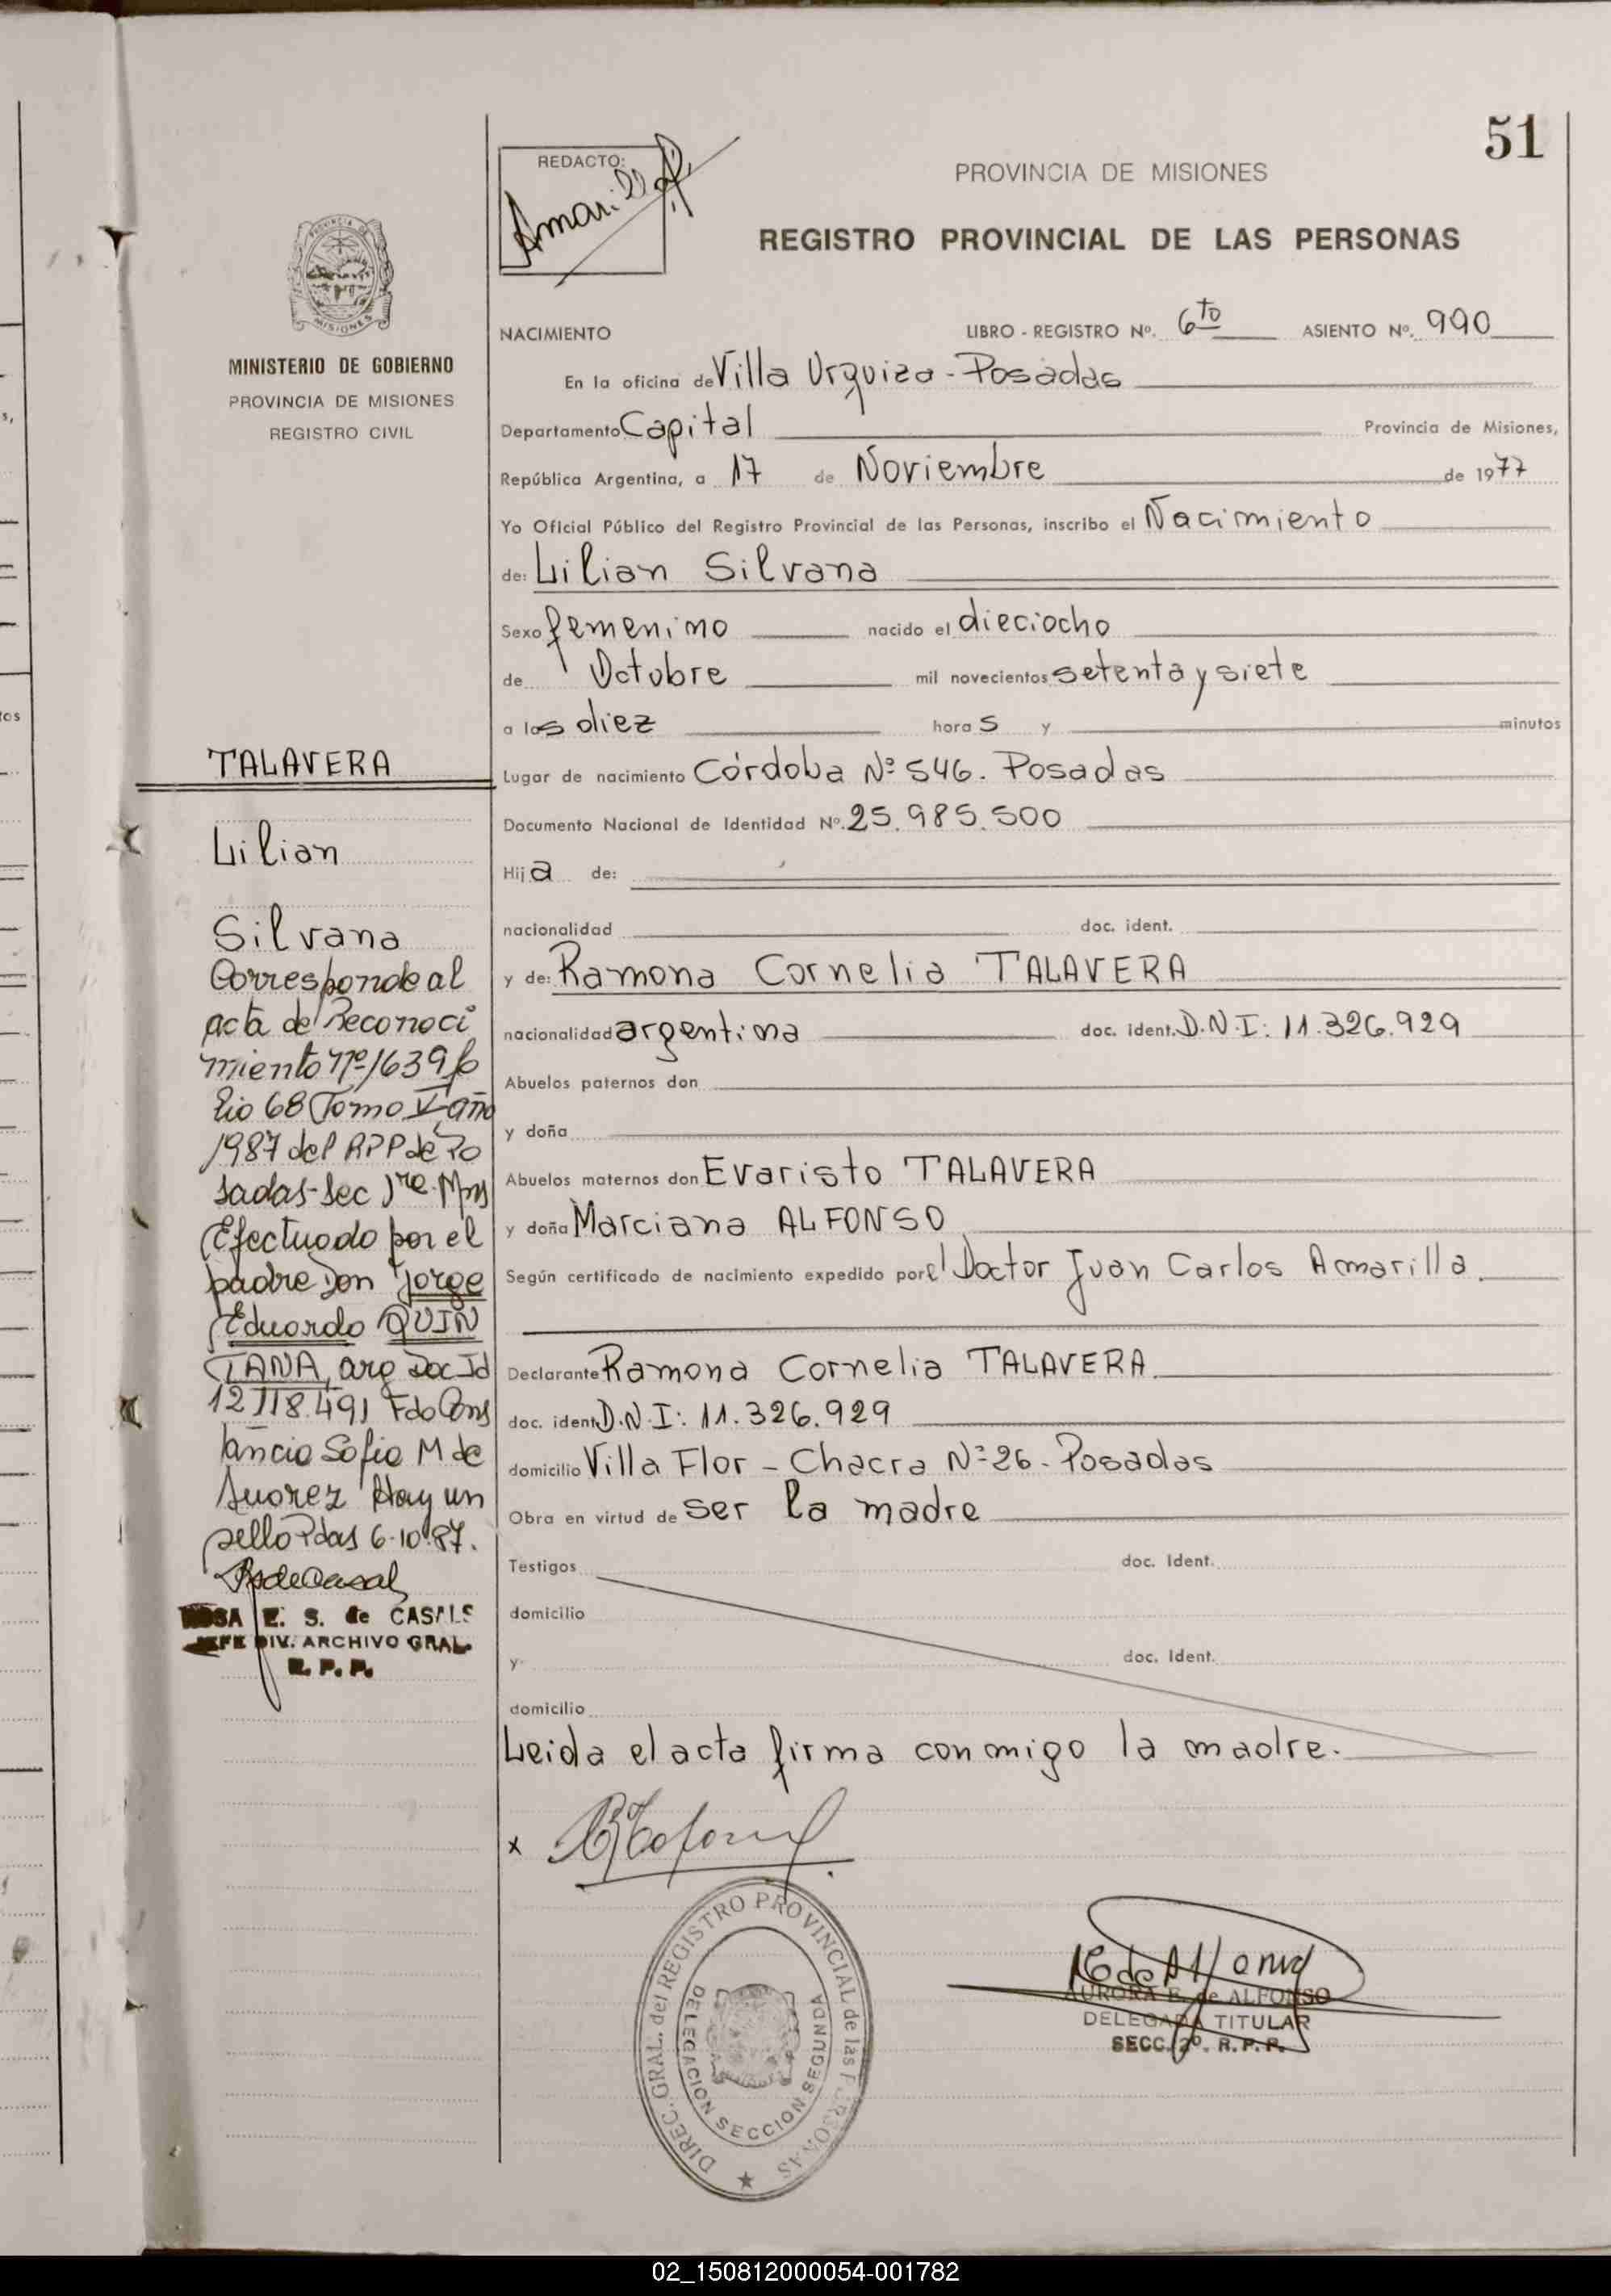 51
REDACTO:
Amarilla
PROVINCIA DE MISIONES
REGISTRO PROVINCIAL DE LAS PERSONAS
MISIONES
MINISTERIO DE GOBIERNO
PROVINCIA DE MISIONES
REGISTRO CIVIL
NACIMIENTO LIBRO - REGISTRO Nº. 6to ASIENTO Nº. 990
En la oficina de Villa Urquiza - Posadas
Departamento Capital Provincia de Misiones,
República Argentina, a 17 de Noviembre de 1977
Yo Oficial Público del Registro Provincial de las Personas, inscribo el Nacimiento
de: Lilian Silvana
Sexo femenino nacido el dieciocho
de Octubre mil novecientos setenta y siete
a las diez horas y minutos
Lugar de nacimiento Córdoba Nº 546. Posadas
Documento Nacional de Identidad Nº. 25.985.500
Hija de:
nacionalidad doc. ident.
y de: Ramona Cornelia TALAVERA
nacionalidad argentina doc. ident. D.N.I: 11.326.929
Abuelos paternos don
y doña
Abuelos maternos don Evaristo TALAVERA
y doña Marciana ALFONSO
Según certificado de nacimiento expedido por el Doctor Juan Carlos Amarilla.
Declarante Ramona Cornelia TALAVERA.
doc. ident D.N.I: 11.326.929
domicilio Villa Flor - Chacra Nº 26 - Posadas
Obra en virtud de ser la madre
Testigos doc. Ident.
domicilio
y doc. Ident.
domicilio
Leida el acta firma conmigo la madre.
x
TALAVERA
Lilian
Silvana
Corresponde al
acta de Reconoci
miento nº 1639 fo
lio 68 Tomo V año
1987 del RPP de Po
sadas-Sec 1re. Mns
Efectuado por el
padre Don Jorge
Eduardo QUIN
TANA, arg Doc Id
12.118.491 Fdo Cons
tancia Sofia M de
Suarez Hay un
sello Pdas 6-10-87.
ROSA E. S. de CASALS
JEFE DIV. ARCHIVO GRAL.
R. P. P.
DIREC. GRAL. del REGISTRO PROVINCIAL de las PERSONAS
DELEGACION SECCION SEGUNDA
AURORA E. de ALFONSO
DELEGADA TITULAR
SECC. 2º. R. P. P.
02_150812000054-001782